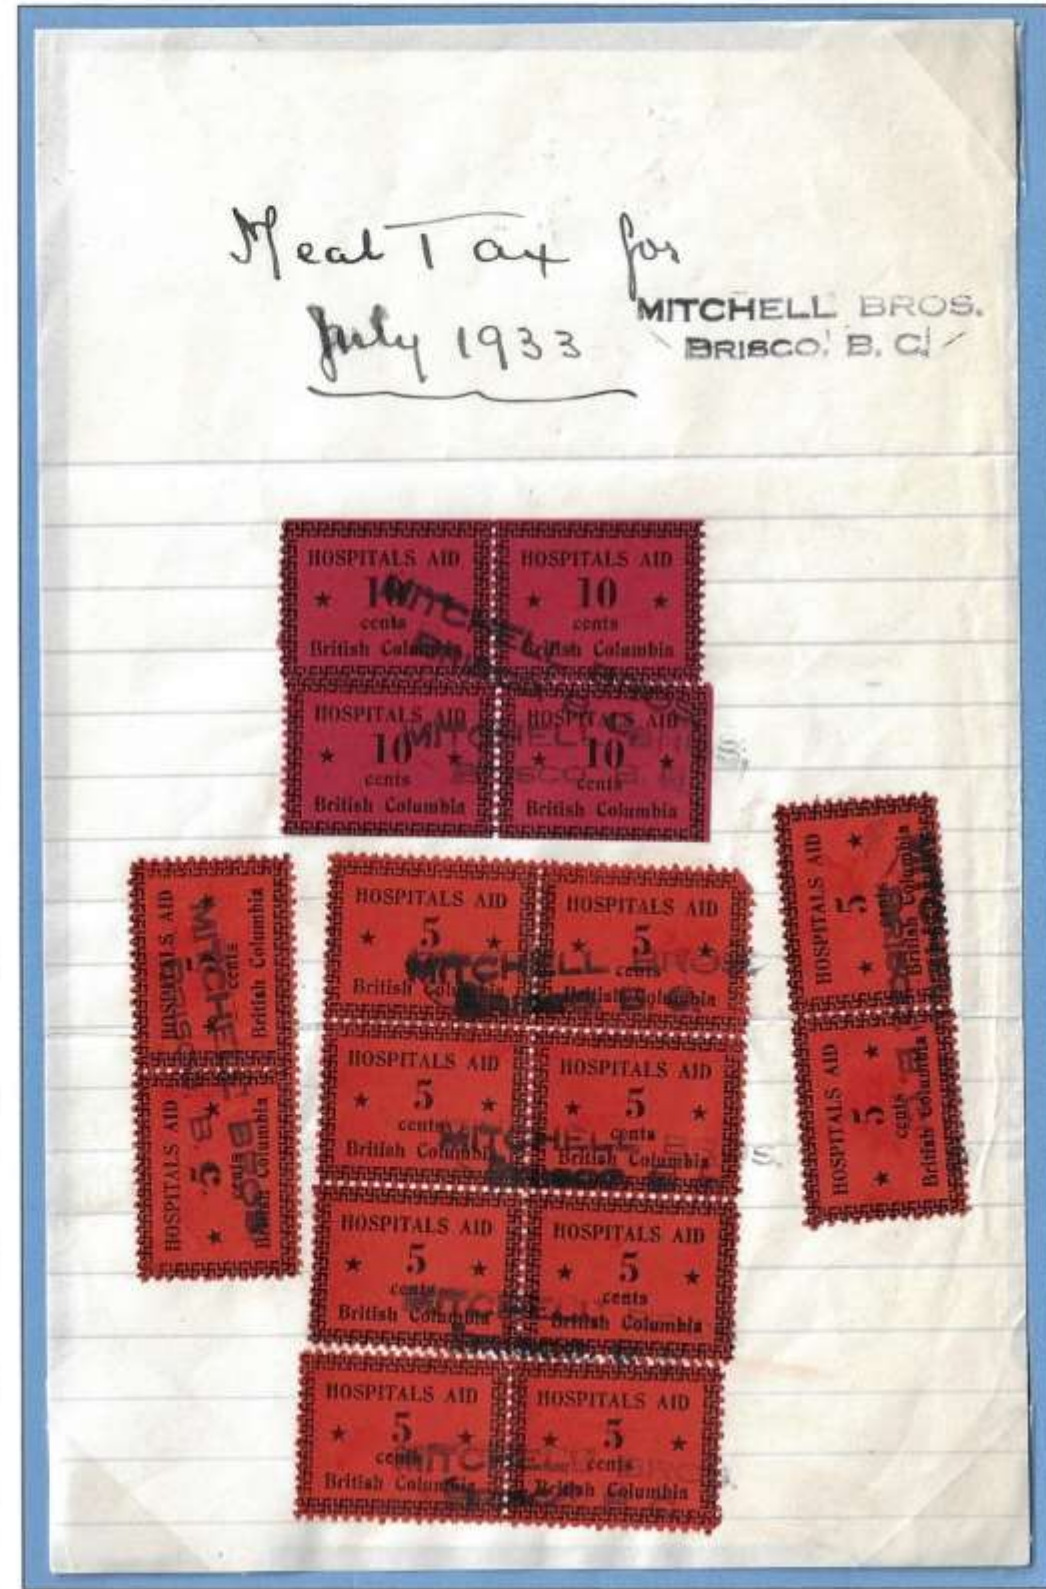 Meal Tax for
July 1933
MITCHELL BROS.
BRISCO, B. C.
HOSPITALS AID
10
cents
British Columbia
HOSPITALS AID
10
cents
British Columbia
MITCHELL BROS.
BRISCO, B. C.
HOSPITALS AID
10
cents
British Columbia
HOSPITALS AID
10
cents
British Columbia
MITCHELL BROS.
BRISCO, B. C.
HOSPITALS AID
5
cents
British Columbia
HOSPITALS AID
5
cents
British Columbia
MITCHELL BROS.
BRISCO, B. C.
HOSPITALS AID
5
British Columbia
HOSPITALS AID
5
cents
British Columbia
MITCHELL BROS.
B. C.
HOSPITALS AID
5
cents
British Columbia
HOSPITALS AID
5
cents
British Columbia
MITCHELL BROS.
HOSPITALS AID
5
cents
British Columbia
HOSPITALS AID
5
cents
British Columbia
MITCHELL
HOSPITALS AID
5
cents
British Columbia
HOSPITALS AID
5
cents
British Columbia
MITCHELL BROS.
HOSPITALS AID
5
cents
British Columbia
HOSPITALS AID
5
cents
British Columbia
B.